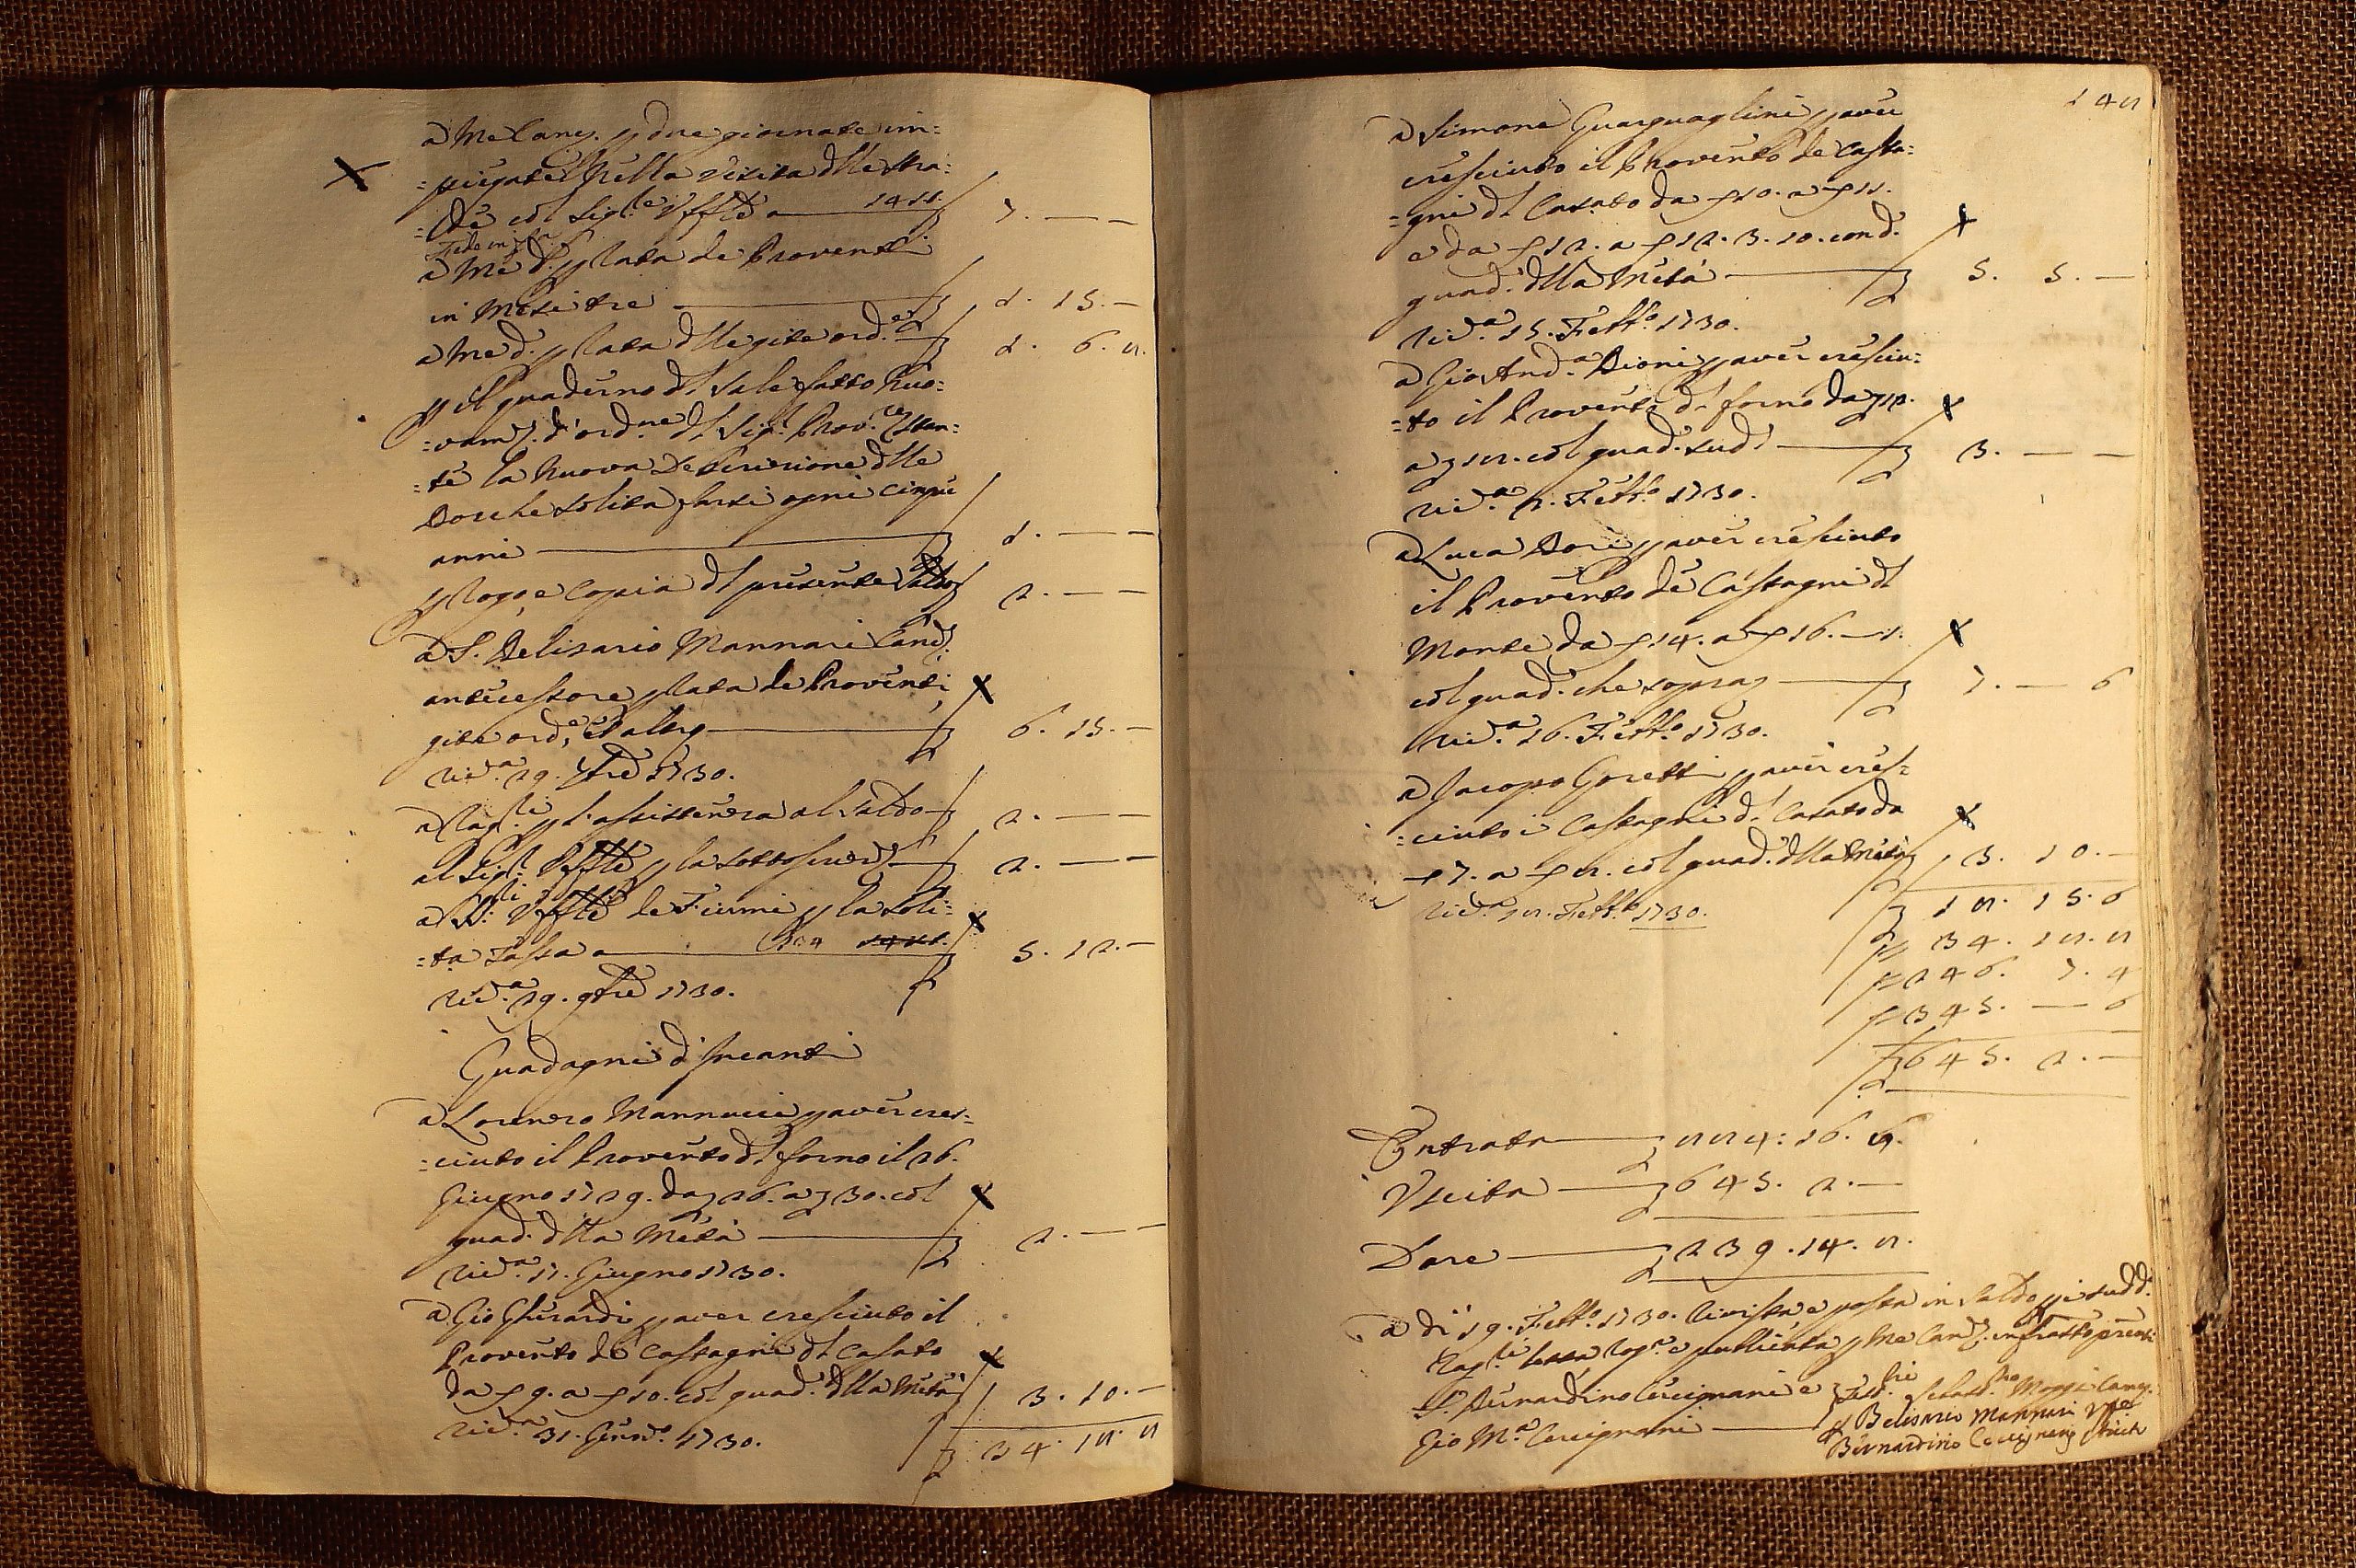 a Me Canc. p due giornate im=
=piegate nella visita dlle stra=
=de col Sig.re Uffle a 14 11. 7. — —
a Me d.o p rata de Proventi
in mesi tre 1. 15. —
a Me d.o p rata dlle gite ord.e 1. 6. 8.
p il quaderno dl sale fatto nuo=
=vam.e d'ord.ne dl Sig.r Prov.re stan=
=te la nuova descrizione dlle
Bocche solita farsi ogni cinque
anni 1. — —
p rog.o e copia dl presente saldo 2. — —
a S. Belisario Mannari Canc.
antecessore p rata de Proventi,
gite ord.e, e 6. 15. —
Ric.a 29. 1730.
a Rag.ti p l'assistenza al saldo 2. — —
al Sig.r Uffle p la sottoscriz.e 2. — —
a SS.ri Uffli de Fiumi p la soli=
=ta tassa a 5. 12. —
Ric.a 29. 9bre 1730.
Guadagni d'Incanti
a Lorenzo Mannucci p aver cres=
=ciuto il Provento dl forno il 26.
Giugno 1729. da 26. a 30. col
guad.o dlla metà 2. — —
Ric.a 17. Giugno 1730.
a Gio Gherardi p aver cresciuto il
Provento de Castagni dl Casato
da 9. a 10. col guad.o dlla metà 3. 10. —
Ric.a 31. Genn.o 1730.
34. 18. 8
148
a Simone Guarguaglini p aver
cresciuto il Provento de Casta=
=gni dl Casato da 10. a 11.
e da 12. a 12. 3. 10. con d.o
guad.o dlla metà 5. 5. —
Ric.a 15. Febb.o 1730.
a Gio And.a Bioni p aver cresciu=
=to il Provento dl forno da 12.
a 18. col guad.o sud.o 3. — —
Ric.a 2. Febb.o 1730.
a Luca Dori p aver cresciuto
il Provento de Castagni dl
Monte da 14. a 16. — 1.
col guad.o che sopra 7. — 6
Ric.a 16. Febb.o 1730.
a Jacopo Goretti p aver cres=
=ciuto i Castagni dl Casato da
7. a 8. col guad.o dlla metà 3. 10. —
Ric.a 18. Febb.o 1730. 18. 15. 6
34. 18. 8
246. 7. 4
345. — 6
645. 2. —
Entrata 884: 16. 8.
Uscita 645. 2. —
Dare 239. 14. 8.
a dì 19. Febb.o 1730. Rivista, e posta in saldo p i sudd.i
Rag.ti letta rog.a e publicata p me Canc. infratto presenti
S. Bernardino Cecignani e Test.ni Sebast.no Moggi Canc.
Gio M.a Cecignani Belisario Mannari
Bernardino Cecignani